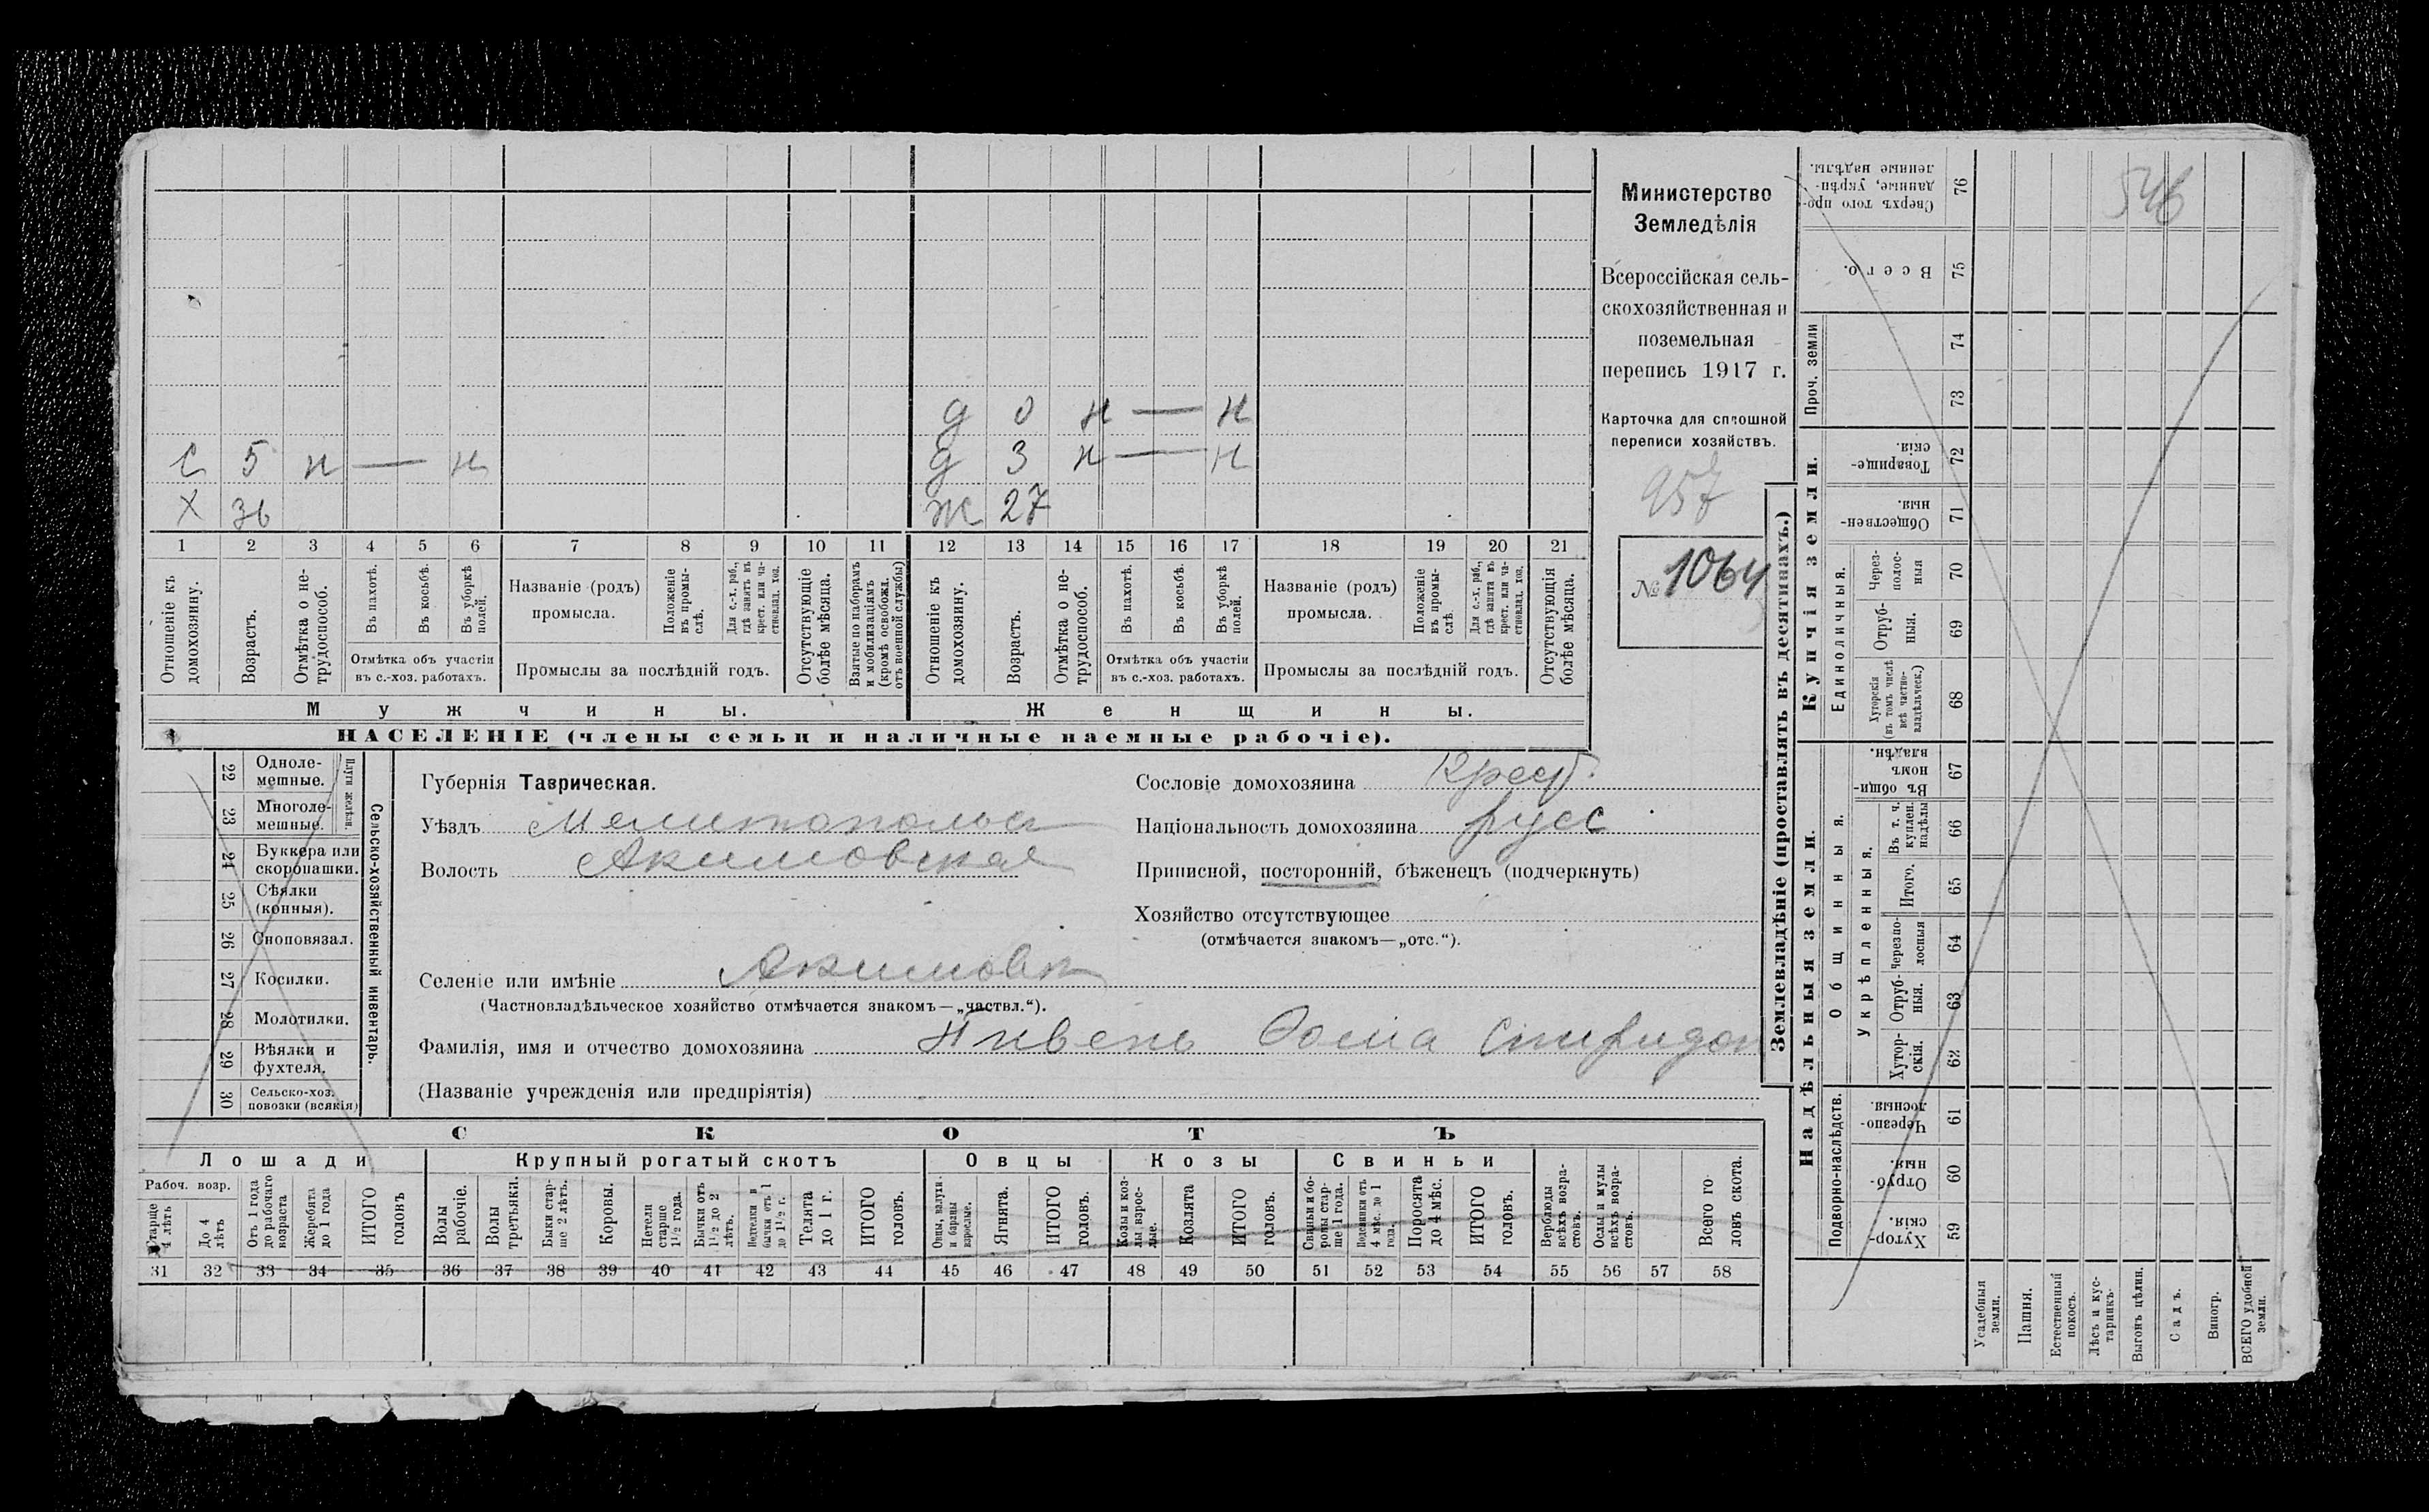 д 0 н — н
с 5 н — н д 3 н — н
х 36 ж 27
1 2 3 4 5 6 7 8 9 10 11 12 13 14 15 16 17 18 19 20 21
Отношеніе къ домохозяину.
Возрастъ.
Отмѣтка о не-
трудоспособ.
Въ пахотѣ.
Въ косьбѣ.
Въ уборкѣ
полей.
Отмѣтка объ участіи
въ с.-хоз. работахъ.
Названіе (родъ)
промысла.
Положеніе
въ промы-
слѣ.
Для с.-х. раб.,
гдѣ занятъ въ
крест. или ча-
стновлад. хоз.
Промыслы за послѣдній годъ.
Отсутствующіе
болѣе мѣсяца.
Взятые по наборамъ
и мобилизаціямъ
(кромѣ освобожд.
отъ военной службы)
Отношеніе къ
домохозяину.
Возрастъ.
Отмѣтка о не-
трудоспособ.
Въ пахотѣ.
Въ косьбѣ.
Въ уборкѣ
полей.
Отмѣтка объ участіи
въ с.-хоз. работахъ.
Названіе (родъ)
промысла.
Положеніе
въ промы-
слѣ.
Для с.-х. раб.,
гдѣ занята въ
крест. или ча-
стновлад. хоз.
Промыслы за послѣдній годъ.
Отсутствующія
болѣе мѣсяца.
Мужчины. Женщины.
НАСЕЛЕНІЕ (члены семьи и наличные наемные рабочіе).
Министерство
Земледѣлія
Всероссійская сель-
скохозяйственная и
поземельная
перепись 1917 г.
Карточка для сплошной
переписи хозяйствъ.
957
№ 1064
22 Одноле-
мешные.
23 Многоле-
мешные.
Плуги желѣзн.
24 Буккера или
скоропашки.
25 Сѣялки
(конныя).
26 Сноповязал.
27 Косилки.
28 Молотилки.
29 Вѣялки и
фухтеля.
30 Сельско-хоз.
повозки (всякія)
Сельско-хозяйственный инвентарь.
Губернія Таврическая.
Уѣздъ Мелитопольск
Волость Акимовская
Сословіе домохозяина Крест.
Національность домохозяина русс
Приписной, посторонній, бѣженецъ (подчеркнуть)
Хозяйство отсутствующее
(отмѣчается знакомъ—„отс.“).
Селеніе или имѣніе Акимовк
(Частновладѣльческое хозяйство отмѣчается знакомъ—„частвл.“).
Фамилія, имя и отчество домохозяина Пивень Фома Спиридон
(Названіе учрежденія или предпріятія)
СКОТЪ
Лошади Крупный рогатый скотъ Овцы Козы Свиньи
Рабоч. возр.
Старше
4 лѣтъ
До 4
лѣтъ
Отъ 1 года
до рабочаго
возраста
Жеребята
до 1 года
ИТОГО
головъ
Волы
рабочіе.
Волы
третьяки.
Быки стар-
ше 2 лѣтъ.
Коровы.
Нетели
старше
1½ года.
Бычки отъ
1½ до 2
лѣтъ.
Нетелки и
бычки отъ 1
до 1½ г.
Телята
до 1 г.
ИТОГО
головъ.
Овцы, валухи
и бараны
взрослые.
Ягнята.
ИТОГО
головъ.
Козы и коз-
лы взрос-
лые.
Козлята
ИТОГО
головъ.
Свиньи и бо-
ровы стар-
ше 1 года.
Подсвинки отъ
4 мѣс. до 1
года.
Поросята
до 4 мѣс.
ИТОГО
головъ.
Верблюды
всѣхъ возра-
стовъ.
Ослы и мулы
всѣхъ возра-
стовъ.
Всего го-
ловъ скота.
31 32 33 34 35 36 37 38 39 40 41 42 43 44 45 46 47 48 49 50 51 52 53 54 55 56 57 58
Землевладѣніе (проставлять въ десятинахъ.)
546
Сверхъ того про-
данные, укрѣп-
ленные надѣлы.
76
Всего.
75
Проч. земли
74
73
Купчія земли.
Товарище-
скія.
72
Обществен-
ныя.
71
Единоличныя.
Через-
полос-
ныя
70
Отруб-
ныя.
69
Хуторскія
(въ томъ числѣ
всѣ частно-
владѣльческ.)
68
Надѣльныя земли.
Общинныя.
Въ общи-
номъ
владѣн.
67
Укрѣпленныя.
Въ т. ч.
куплен.
надѣлы
66
Итого.
65
Черезпо-
лосныя
64
Отруб-
ныя.
63
Хутор-
скія.
62
Подворно-наслѣдств.
Черезпо-
лосныя.
61
Отруб-
ныя.
60
Хутор-
скія.
59
Усадебныя
земли.
Пашня.
Естественный
покосъ.
Лѣсъ и кус-
тарникъ.
Выгонъ цѣлин.
Садъ.
Виногр.
ВСЕГО удобной
земли.